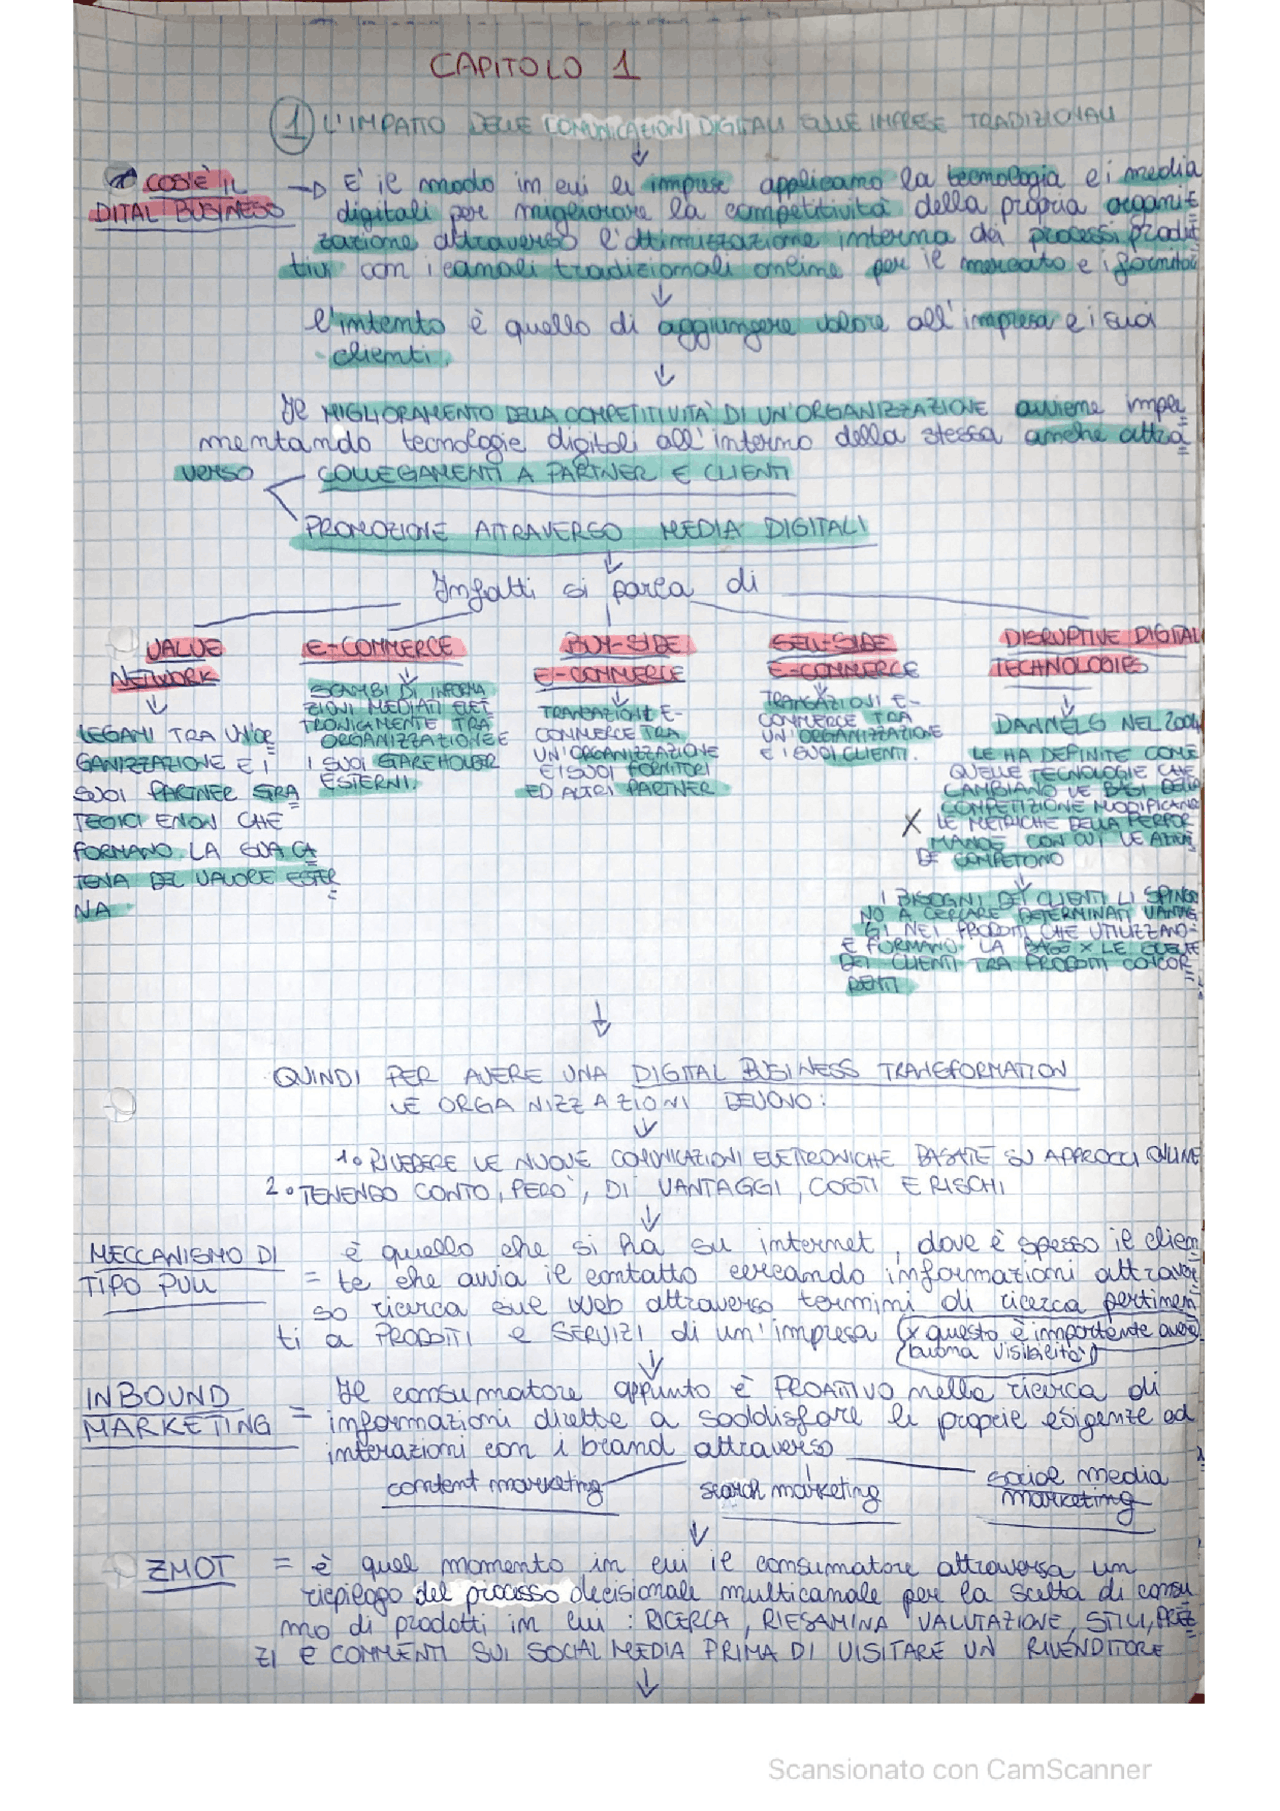 CAPITOLO 1
1 L'IMPATTO DELLE COMUNICAZIONI DIGITALI SULLE IMPRESE TRADIZIONALI
COS'È IL
DITAL BUSINESS
È il modo in cui le imprese applicano la tecnologia e i media
digitali per migliorare la competitività della propria organiz
zazione attraverso l'ottimizzazione interna dei processi produt
tivi con i canali tradizionali online per il mercato e i fornitori
l'intento è quello di aggiungere valore all'impresa e i suoi
clienti.
Il MIGLIORAMENTO DELLA COMPETITIVITÀ DI UN'ORGANIZZAZIONE avviene imple
mentando tecnologie digitali all'interno della stessa anche attra
verso COLLEGAMENTI A PARTNER E CLIENTI
PROMOZIONE ATTRAVERSO MEDIA DIGITALI
Infatti si parla di
VALUE
NETWORK
LEGAMI TRA UN'OR
GANIZZAZIONE E I
SUOI PARTNER STRA
TEGICI E NON CHE
FORMANO LA SUA CA
TENA DEL VALORE ESTER
NA
E-COMMERCE
SCAMBI DI INFORMA
ZIONI MEDIATI ELET
TRONICAMENTE TRA
ORGANIZZAZIONE E
I SUOI STAREHOLDER
ESTERNI.
BUY-SIDE
E-COMMERCE
TRANSAZIONI E-
COMMERCE TRA
UN'ORGANIZZAZIONE
E I SUOI FORNITORI
ED ALTRI PARTNER
SELL-SIDE
E-COMMERCE
TRANSAZIONI E-
COMMERCE TRA
UN'ORGANIZZAZIONE
E I SUOI CLIENTI.
DISRUPTIVE DIGITAL
TECHNOLOGIES
DANNELS NEL 2004
LE HA DEFINITE COME
QUELLE TECNOLOGIE CHE
CAMBIANO LE BASI DELLA
COMPETIZIONE MODIFICANO
X LE METRICHE DELLA PERFOR
MANCE CON CUI LE AZIEN
DE COMPETONO
I BISOGNI DEI CLIENTI LI SPINGO
NO A CERCARE DETERMINATI VANTAG
GI NEI PRODOTTI CHE UTILIZZANO
E FORMANO LA BASE X LE SCELTE
DEI CLIENTI TRA PRODOTTI CONCOR
RENTI
QUINDI PER AVERE UNA DIGITAL BUSINESS TRANSFORMATION
LE ORGANIZZAZIONI DEVONO:
1. RIVEDERE LE NUOVE COMUNICAZIONI ELETTRONICHE BASATE SU APPROCCI ONLINE
2. TENENDO CONTO, PERÒ, DI VANTAGGI, COSTI E RISCHI
MECCANISMO DI
TIPO PULL
= è quello che si ha su internet, dove è spesso il clien
te che avvia il contatto cercando informazioni attraver
so ricerca sul web attraverso termini di ricerca pertinen
ti a PRODOTTI e SERVIZI di un'impresa (x questo è importante avere
buona visibilità)
INBOUND
MARKETING
= Il consumatore appunto è PROATTIVO nella ricerca di
informazioni dirette a soddisfare le proprie esigenze ad
interazioni con i brand attraverso
content marketing
search marketing
social media
marketing
ZMOT = è quel momento in cui il consumatore attraversa un
riepilogo del processo decisionale multicanale per la scelta di consu
mo di prodotti in cui : RICERCA, RIESAMINA VALUTAZIONE, STILI, PREZ
ZI E COMMENTI SUI SOCIAL MEDIA PRIMA DI VISITARE UN RIVENDITORE
Scansionato con CamScanner